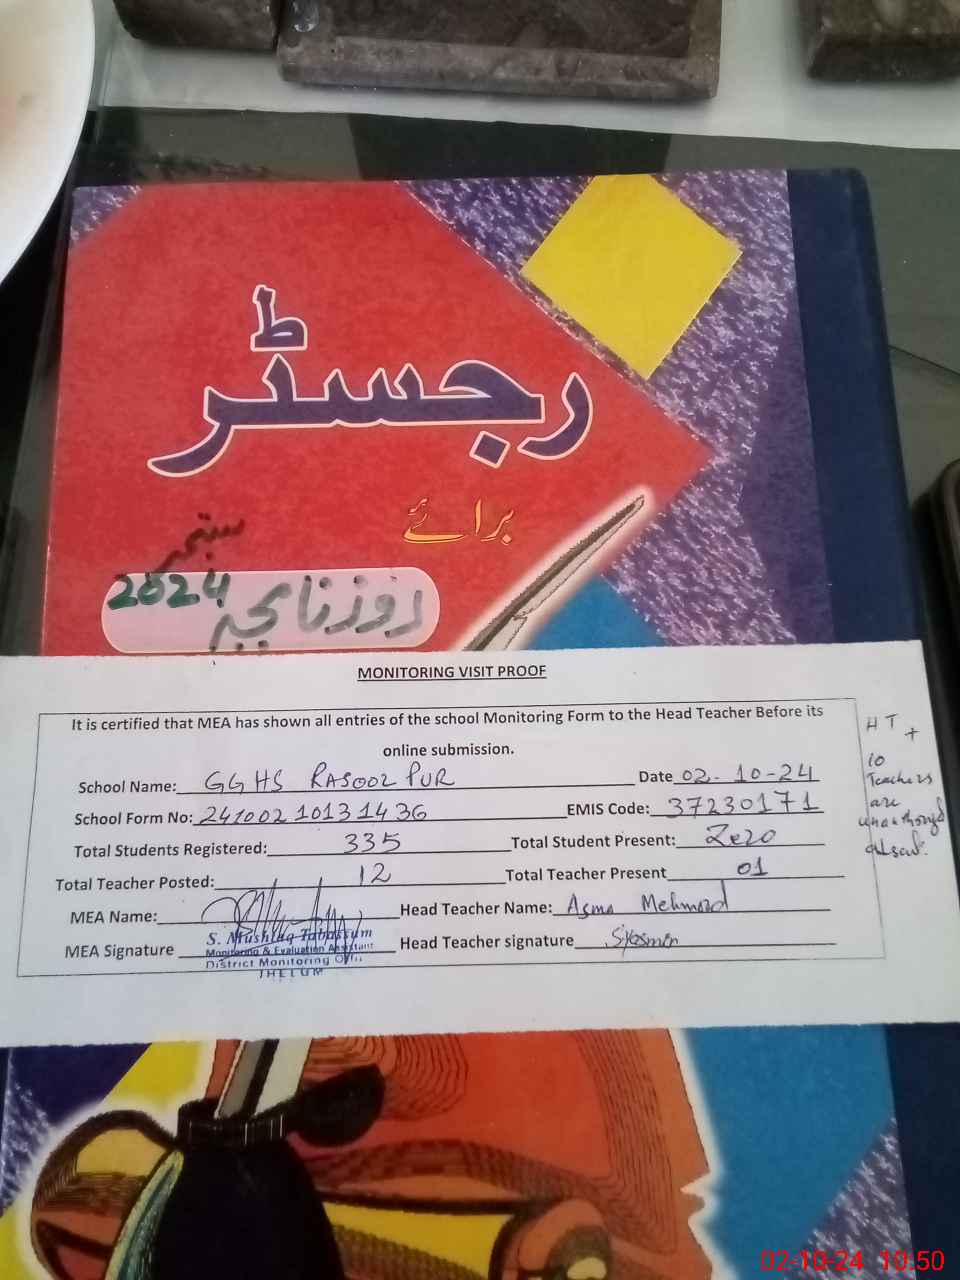 رجسٹر
برائے
ستمبر
روزنامچہ 2024
MONITORING VISIT PROOF
It is certified that MEA has shown all entries of the school Monitoring Form to the Head Teacher Before its
online submission.
School Name: GGHS RASOOL PUR Date 02-10-24
School Form No: 24100210131436 EMIS Code: 37230171
Total Students Registered: 335 Total Student Present: Zero
Total Teacher Posted: 12 Total Teacher Present 01
MEA Name: Head Teacher Name: Asma Mehmood
MEA Signature Head Teacher signature
S. Mushtaq Tabassum
Monitoring & Evaluation Assistant
District Monitoring Office
JHELUM
HT +
10
Teachers
are
absent.
02-10-24 10:50